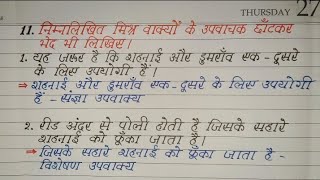 THURSDAY 27
11. निम्नलिखित मिश्र वाक्यों के उपवाचक छाँटकर
भेद भी लिखिए।
1. यह जरूर है कि शहनाई और डुमराँव एक-दूसरे
के लिए उपयोगी हैं।
⇒ शहनाई और डुमराँव एक-दूसरे के लिए उपयोगी
हैं - संज्ञा उपवाक्य
2. रीड अंदर से पोली होती है जिसके सहारे
शहनाई को फूँका जाता है।
⇒ जिसके सहारे शहनाई को फूँका जाता है -
विशेषण उपवाक्य